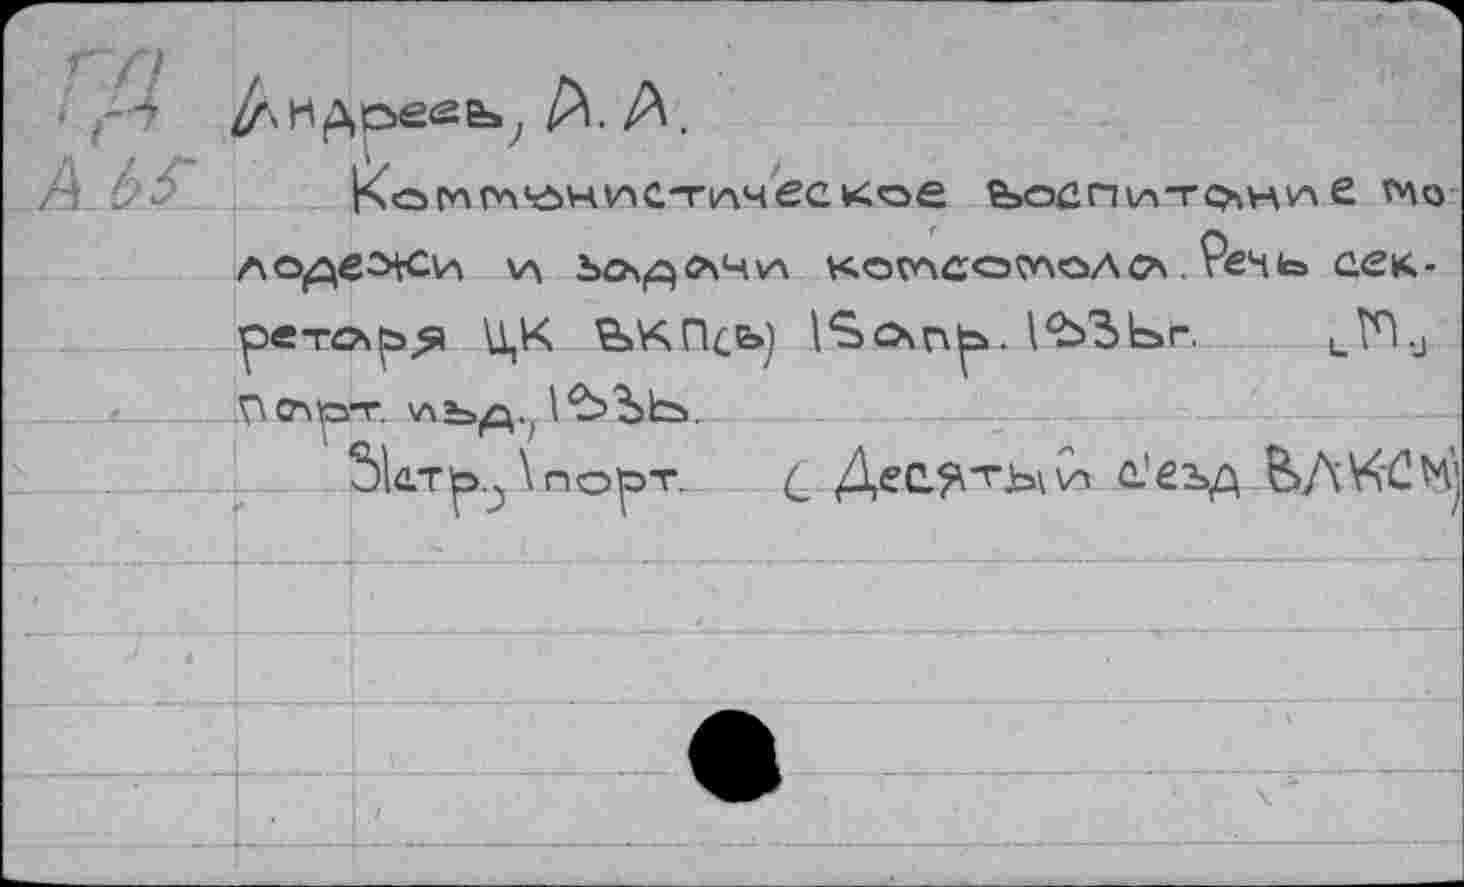 ГД
Андреев, А. А.
А 65
Коммунистическое воспитание мо
лодежи и задачи комсомола. Речь сек-
ретаря ЦК ВКП(б) 15 апр. 1936г. [М.]
Парт. изд., 1936.
31стр., 1 порт. (Десятый с'езд ВЛКСМ)